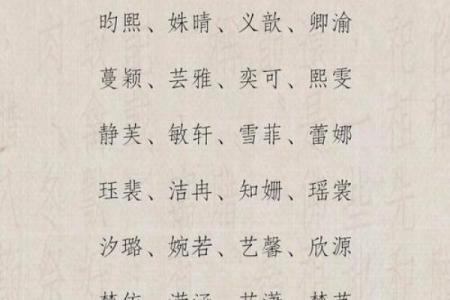 昀熙、姝晴、义歆、卿渝
蔓颖、芸雅、奕可、熙雯
静芙、敏轩、雪菲、蕾娜
珏裴、洁冉、知姗、瑶裳
汐璐、婉若、艺馨、欣源